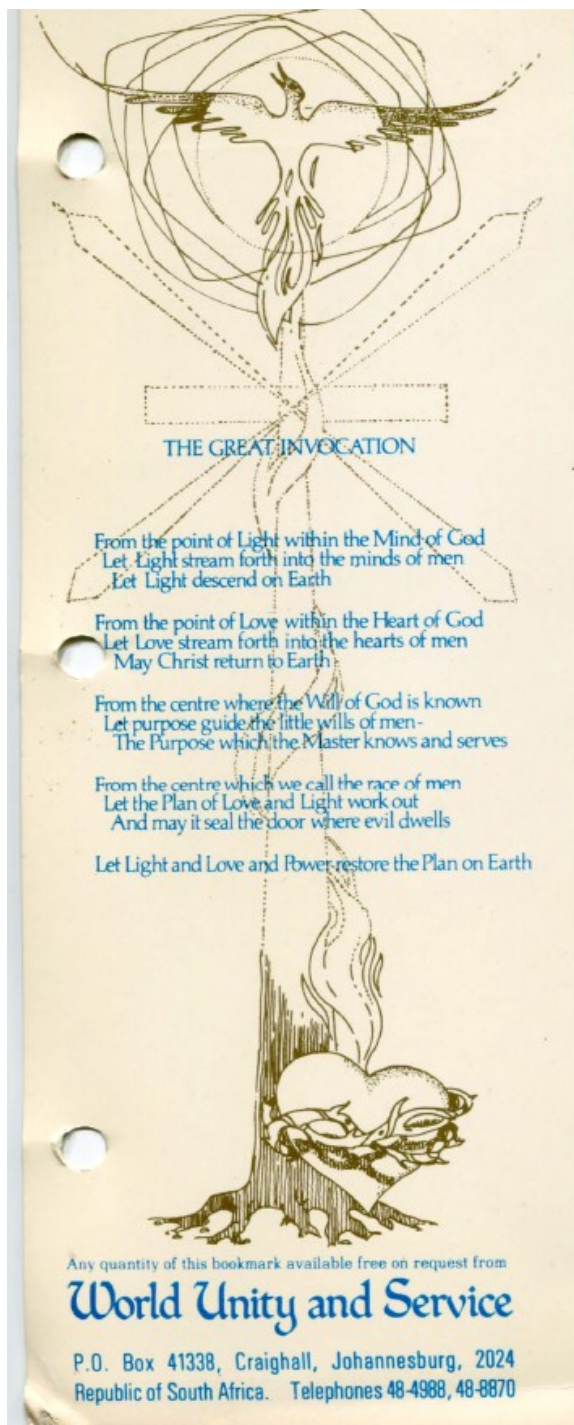 THE GREAT INVOCATION
From the point of Light within the Mind of God
Let Light stream forth into the minds of men
Let Light descend on Earth
From the point of Love within the Heart of God
Let Love stream forth into the hearts of men
May Christ return to Earth
From the centre where the Will of God is known
Let purpose guide the little wills of men-
The Purpose which the Master knows and serves
From the centre which we call the race of men
Let the Plan of Love and Light work out
And may it seal the door where evil dwells
Let Light and Love and Power restore the Plan on Earth
Any quantity of this bookmark available free on request from
World Unity and Service
P.O. Box 41338, Craighall, Johannesburg, 2024
Republic of South Africa. Telephones 48-4988, 48-8870